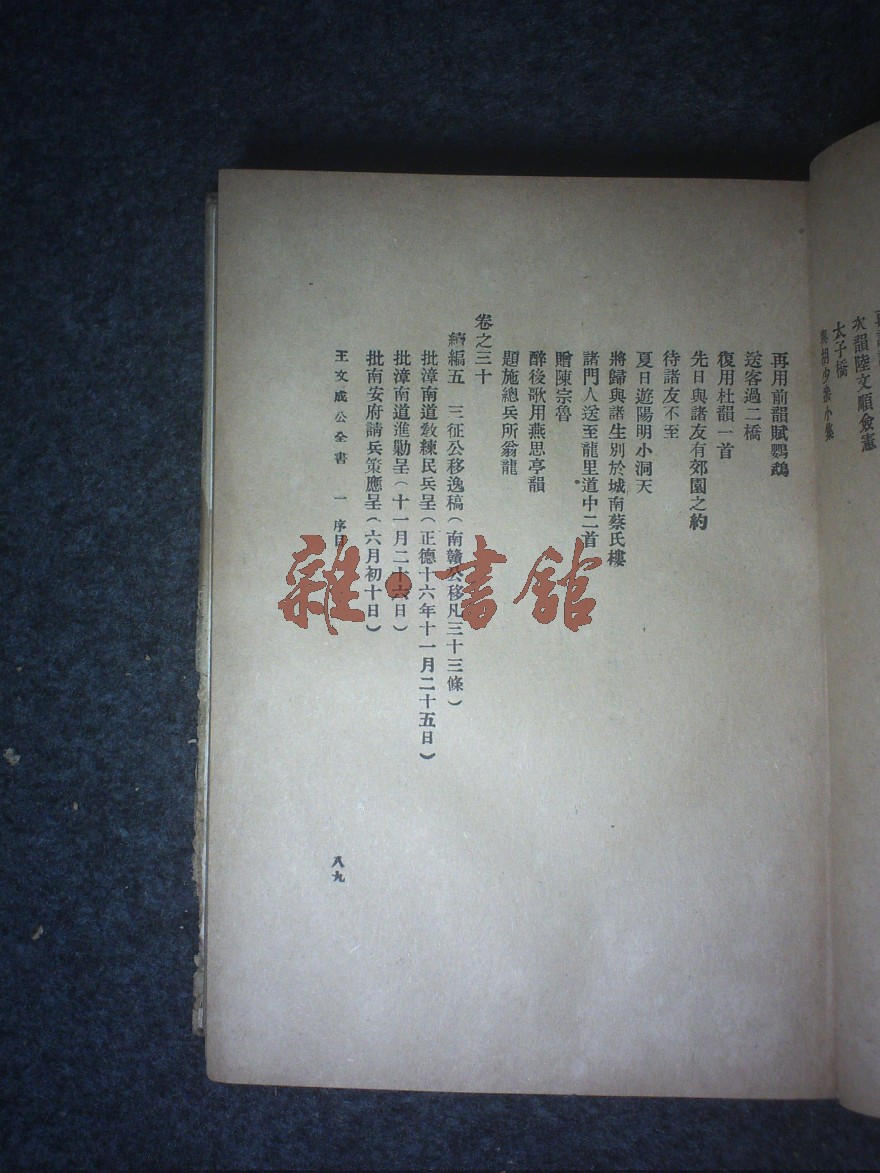 次韻陸文順僉憲
太子橋
與胡少參小集
再用前韻賦鸚鵡
送客過二橋
復用杜韻一首
先日與諸友有郊園之約
待諸友不至
夏日遊陽明小洞天
將歸與諸生別於城南蔡氏樓
諸門人送至龍里道中二首
贈陳宗魯
醉後歌用燕思亭韻
題施總兵所翁龍
卷之三十
續編五　三征公移逸稿（南贛公移凡三十三條）
批漳南道敎練民兵呈（正德十六年十一月二十五日）
批漳南道進勦呈（十一月二十六日）
批南安府請兵策應呈（六月初十日）
王文成公全書　一　序目
八九
雜·書館